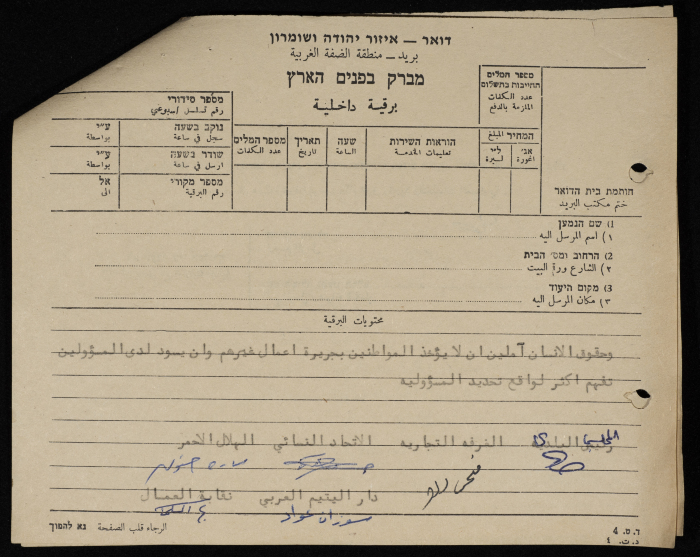 דואר – איזור יהודה ושומרון
بريد – منطقة الضفة الغربية
מברק בפנים הארץ
برقية داخلية
מספר המלים
החייבות בתשלום
عدد الكلمات
الملزمة بالدفع
המחיר المبلغ
אג' اغورة
ל"י ليرة
הוראות השירות
تعليمات الخدمة
שעה
الساعة
תאריך
تاريخ
מספר המלים
عدد الكلمات
מספר סידורי
رقم تسلسل اسبوعي
נוקב בשעה
سجل في ساعة
ע"י
بواسطة
שודר בשעה
ارسل في ساعة
ע"י
بواسطة
מספר מקורי
رقم البرقية
אל
الى
חותמת בית הדואר
ختم مكتب البريد
1) שם הנמען
١) اسم المرسل اليه
2) הרחוב ומס' הבית
٢) الشارع ورقم البيت
3) מקום היעוד
٣) مكان المرسل اليه
محتويات البرقية
وحقوق الانسان آملين ان لا يؤخذ المواطنين بجريرة اعمال غيرهم وان يسود لدى المسؤولين
تفهم اكثر لواقع تحديد المسؤوليه
المجلس البلدية الغرفه التجاريه الاتحاد النسائي الهلال الاحمر
دار اليتيم العربي نقابة العمال
سوزان عواد
ד. מ. 4
د. ت. ٤
الرجاء قلب الصفحة נא להפוך